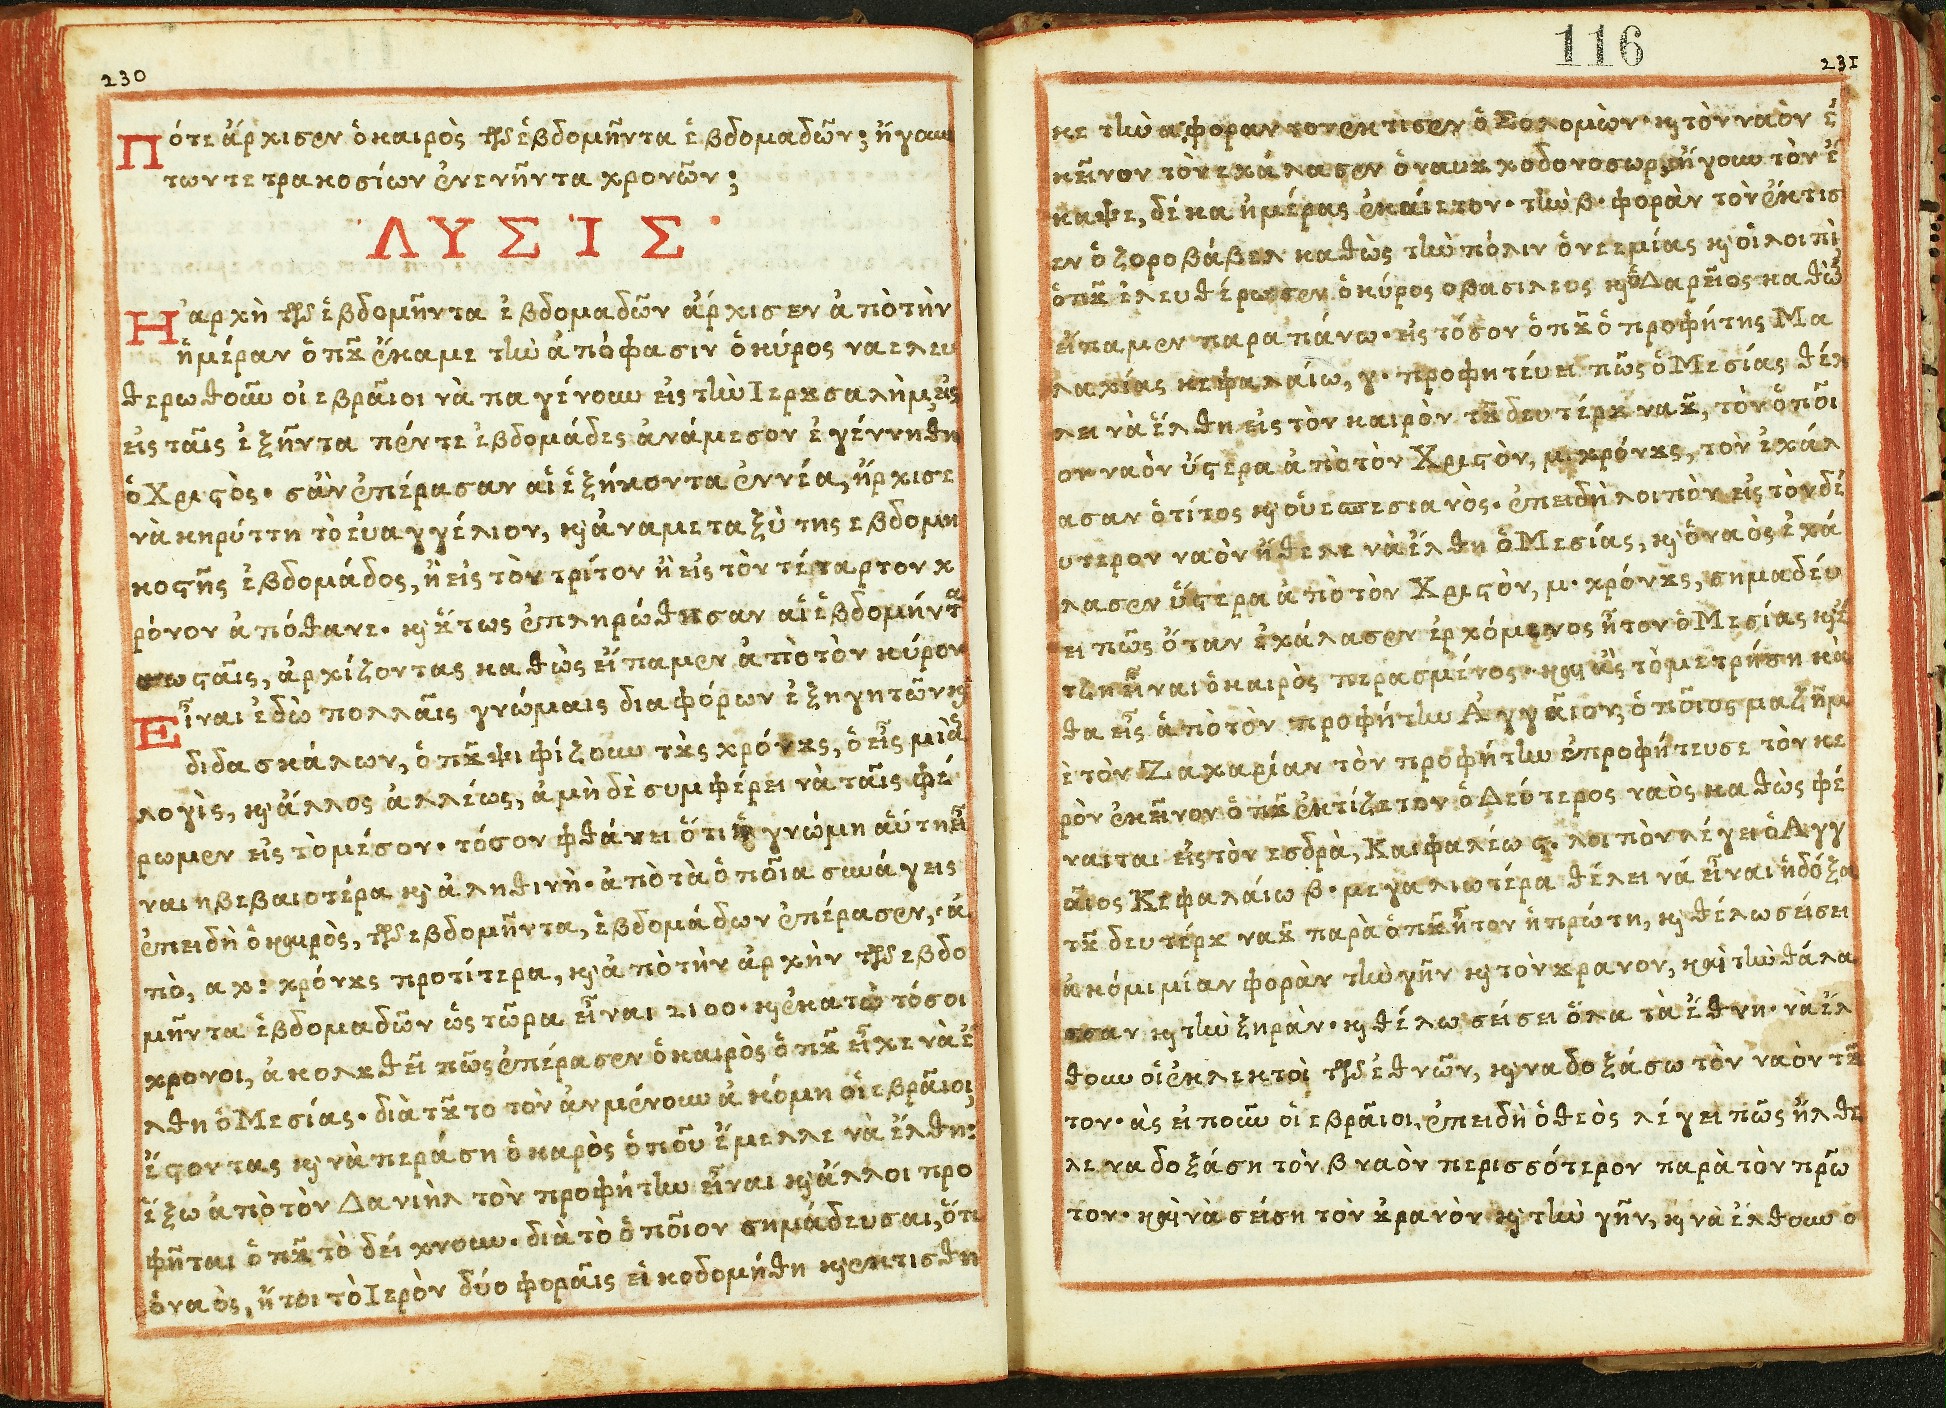 230
Πότε ἄρχισεν ὁ καιρὸς τῶν ἑβδομῆντα ἑβδομαδῶν; ἤγουν
των τετρακοσίων ἐνενῆντα χρονῶν;
ΛΥΣΙΣ
Ἡ ἀρχὴ τῶν ἑβδομῆντα ἑβδομαδῶν ἄρχισεν ἀπὸ τὴν
ἡμέραν ὁποῦ ἔκαμε τὴν ἀπόφασιν ὁ κύρος να ελευ
θερωθοῦν οἱ εβραῖοι νὰ παγένουν εἰς τὴν Ιερουσαλὴμ, εἰς
εἰς ταῖς ἐξῆντα πέντε ἑβδομάδες ἀνάμεσον ἐγέννηθη
ὁ Χριστὸς· σἂν ἐπέρασαν αἱ ἑξήκοντα ἐννέα, ἤρχισε
νὰ κηρύττη τὸ ευαγγέλιον, κὶ ἀναμεταξὺ της εβδομη
κοστῆς ἑβδομάδος, ἢ εἰς τὸν τρίτον ἢ εἰς τὸν τέταρτον χ
ρόνον ἀπόθανε· κὶ οὕτως ἐπληρώθησαν αἱ ἑβδομήντα
στωσταῖς, ἀρχίζοντας καθὼς εἴπαμεν ἀπὸ τὸν κύρον
Εἶναι ἐδὼ πολλαῖς γνώμαις διαφόρων ἐξηγητῶν κὶ
διδασκάλων, ὁποῦ ψιφίζουν τοὺς χρόνους, ὁ εἷς μιᾶ
λογὶς, κὶ ἄλλος ἀλλέως, ἀμὴ δὲ συμφέρει νὰ ταῖς φέ
ρωμεν εἰς τὸ μέσον· τόσον φθάνει ὅτι ἡ γνώμη αὕτη εἶ
ναι η βεβαιοτέρα κὶ ἀληθινὴ· ἀπὸ τὰ ὁποῖα συνάγεις
ἐπειδὴ ὁ καιρὸς, τῶν εβδομῆντα, ἑβδομάδων ἐπέρασεν, ἀ
πὸ, αχ: χρόνους προτίτερα, κὶ ἀπὸ τὴν ἀρχὴν τῶν εβδο
μῆντα ἑβδομαδῶν ὡς τῶρα εἶναι 2100· κὶ ἑκατὸν τόσοι
χρονοι, ἀκολουθεῖ πῶς ἐπέρασεν ὁ καιρὸς ὁποῦ εἶχε νὰ ἔ
λθη ὁ Μεσίας· διὰ τοῦτο τὸν ἀνμένουν ἀκόμη οἱ εβραῖοι,
ἔστοντας κὶ νὰ περάση ὁ καρὸς ὁποῦ ἔμελλε νὰ ἔλθη:
ἔξω ἀπὸ τὸν Δανιὴλ τὸν προφήτην εἶναι κὶ ἄλλοι προ
φῆται ὁποῦ τὸ δείχνουν· διὰ τὸ ὁποῖον σημάδευσαι, ὅτι
ὁ ναὸς, ἤτοι τὸ Ιερὸν δύο φοραῖς εἰκοδομήθη κὶ εκτισθη
116
231
κε τὴν α· φοραν τον εκτισεν ὁ Σολομὼν· κὶ τὸν ναὸν ἐ
κεῖνον τὸν εχάλασεν ὁ ναυκχοδονοσωρ, ἤγουν τὸν ἔ
καψε, δέκα ἡμέρας ἐκαίετον· τὴν β· φορὰν τὸν ἔκτισ
εν ὁ ζοροβάβελ καθὼς τὴν πόλιν ὁ νεεμίας κὶ οἱ λοιπὶ
ὁποῦ ἐλευθέρωσεν ὁ κύρος ο βασιλεος κὶ ὁ Δαρεῖος καθὼ
εἴπαμεν παραπάνω· εἰς τόσον ὁποῦ ὁ προφήτης Μα
λαχίας κεφαλαίω, γ· προφητέυει πῶς ὁ Μεσίας θέλ
λει νὰ ἔλθη εἰς τὸν καιρὸν τοῦ δευτέρου ναοῦ, τὸν ὁποῖ
ον ναὸν ὕστερα ἀπὸ τὸν Χριστὸν, μ· χρόνους, τὸν ἐχάλ
ασαν ὁ τίτος κὶ ὁ υεσπεσιανὸς· ἐπειδὴ λοιπὸν εἰς τὸν δέ
υτερον ναὸν ἤθελε νὰ ἔλθη ὁ Μεσίας, κὶ ὁ ναὸς ἐχά
λασεν ὕστερα ἀπὸ τὸν Χριστὸν, μ· χρόνους, σημαδέυ
ει πῶς ὅταν ἐχάλασεν ἐρχόμενος ἦτον ὁ Μεσίας κὶ ἔ
τζη εἶναι ὁ καιρὸς περασμένος· καὶ ἂς τὸ μετρήση κὰ
θα εἷς ἀπὸ τὸν προφήτην Αγγαῖον, ὁ ποῖος μαζῆ μ
ὲ τὸν Ζαχαρίαν τὸν προφήτην ἐπροφήτευσε τὸν κε
ρὸν ἐκεῖνον ὁποῦ ἐκτίζετον ὁ Δεύτερος ναὸς καθὼς φέ
ναιται εἰς τὸν εσδρὰ, Καιφαλέω ς· λοιπὸν λέγει ὁ Αγγ
αῖος Κεφαλαίω β· μεγαλιωτέρα θέλει νά εἶναι ἡ δόξα
τοῦ δευτέρου ναοῦ παρὰ ὁποῦ ἦτον ἡ πρώτη, κὶ θέλω σείσει
ἀκόμι μίαν φορὰν τὴν γῆν κὶ τὸν ουρανον, καὶ τὴν θάλα
σσαν κὶ τὴν ξηρὰν· κὶ θέλω σείσει ὅλα τὰ ἔθνη· νὰ ἔλ
θουν οἱ ἐκλεκτοὶ τῶν ἐθνῶν, κὶ να δοξάσω τὸν ναὸν τοῦ
τον· ὰς εἰποῦν οἱ εβραῖοι, ἐπειδὴ ὁ θεὸς λέγει πῶς ἤλθε
λε να δοξάση τὸν β ναὸν περισσότερον παρὰ τὸν πρῶ
τον· καὶ νὰ σείση τὸν οὐρανὸν κὶ τὴν γῆν, κὶ νὰ ἐλθουν ο